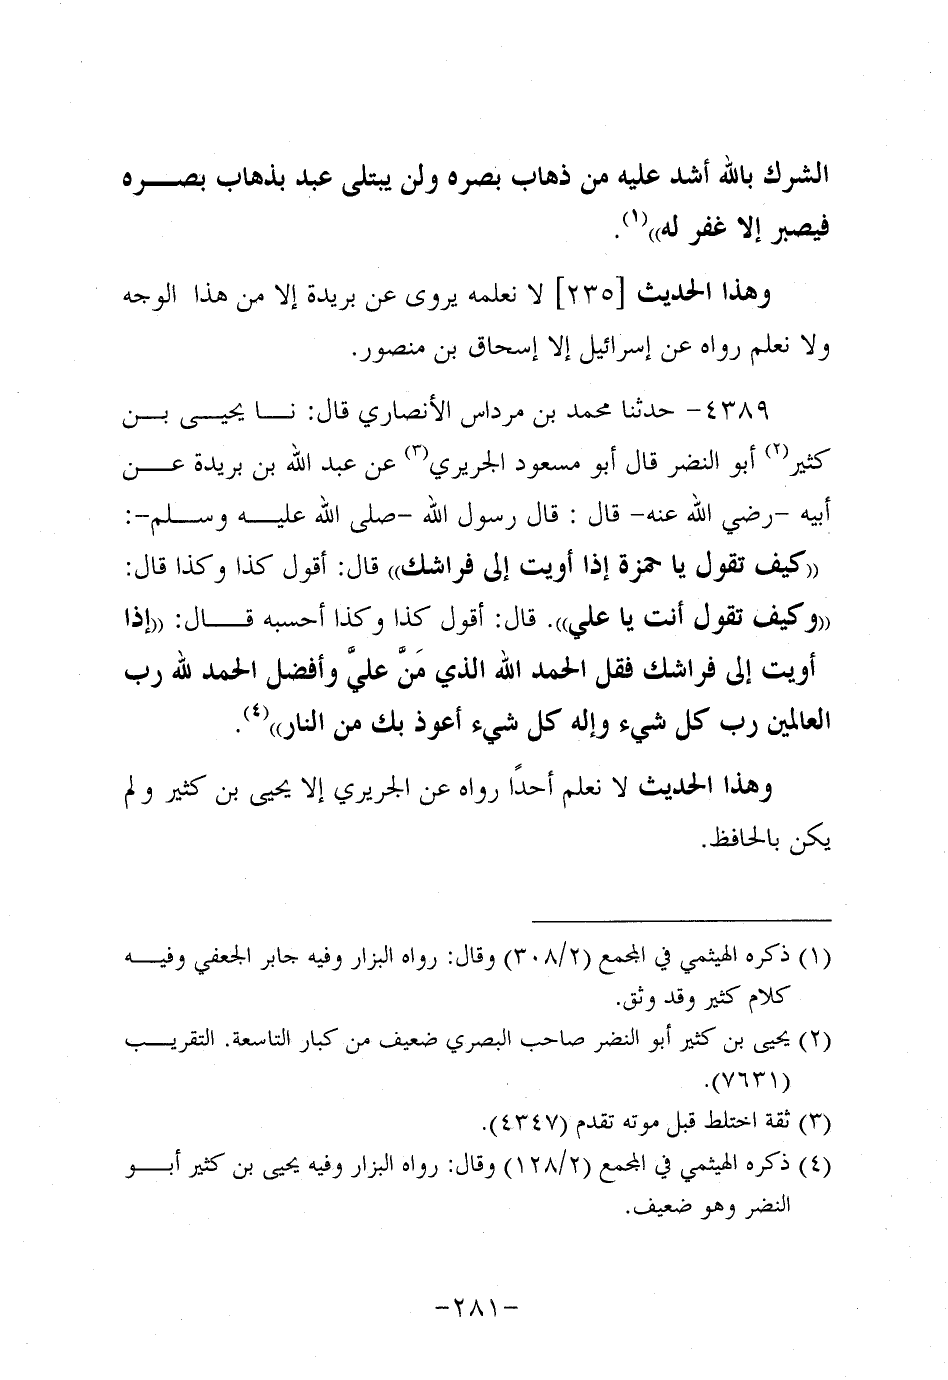 الشرك بالله أشد عليه من ذهاب بصره ولن يبتلى عبد بذهاب بصره
فيصبر إلا غفر له»(١).
وهذا الحديث [٢٣٥] لا نعلمه يروى عن بريدة إلا من هذا الوجه
ولا نعلم رواه عن إسرائيل إلا إسحاق بن منصور.
٤٣٨٩- حدثنا محمد بن مرداس الأنصاري قال: نا يحيى بن
كثير(٢) أبو النضر قال أبو مسعود الجريري(٣) عن عبد الله بن بريدة عن
أبيه -رضي الله عنه- قال : قال رسول الله -صلى الله عليه وسلم-:
«كيف تقول يا حمزة إذا أويت إلى فراشك» قال: أقول كذا وكذا قال:
«وكيف تقول أنت يا علي». قال: أقول كذا وكذا أحسبه قال: «إذا
أويت إلى فراشك فقل الحمد الله الذي مَنَّ عليَّ وأفضل الحمد لله رب
العالمين رب كل شيء وإله كل شيء أعوذ بك من النار»(٤).
وهذا الحديث لا نعلم أحدًا رواه عن الجريري إلا يحيى بن كثير ولم
يكن بالحافظ.
(١) ذكره الهيثمي في المجمع (٣٠٨/٢) وقال: رواه البزار وفيه جابر الجعفي وفيه
كلام كثير وقد وثق.
(٢) يحيى بن كثير أبو النضر صاحب البصري ضعيف من كبار التاسعة. التقريب
(٧٦٣١).
(٣) ثقة اختلط قبل موته تقدم (٤٣٤٧).
(٤) ذكره الهيثمي في المجمع (١٢٨/٢) وقال: رواه البزار وفيه يحيى بن كثير أبو
النضر وهو ضعيف.
-٢٨١-